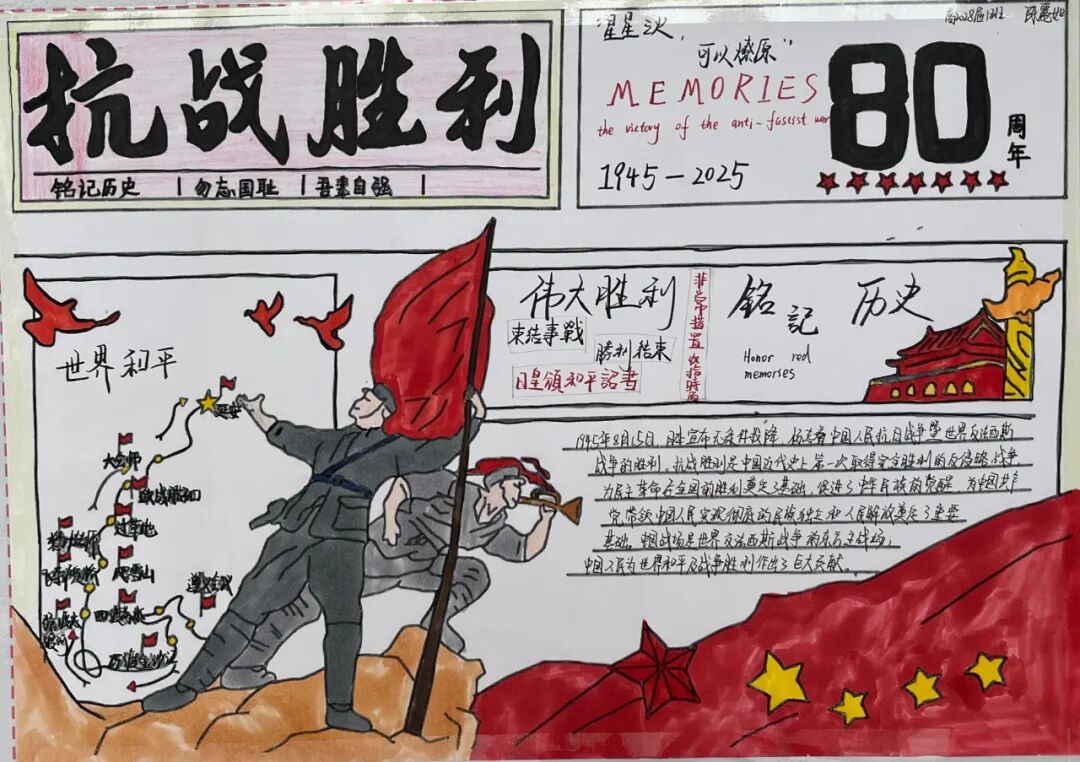 抗战胜利
铭记历史 | 勿忘国耻 | 吾辈自强 |
星星之火,
可以燎原"
MEMORIES
the victory of the anti-fascist war
1945-2025
80
周年
伟大胜利
束结事戰
勝利结束
日皇頒和平詔書
非常措置
铭記 历史
Honor red
memories
世界和平
延安
大会师
过草地
爬雪山
遵义会议
四渡赤水
巧渡金沙江
1945年8月15日,日本宣布无条件投降,标志着中国人民抗日战争暨世界反法西斯
战争的胜利。抗战胜利是中国近代史上第一次取得完全胜利的反侵略战争
为民主革命在全国的胜利奠定了基础,促进了中华民族的觉醒,为中国共产
党带领中国人民实现彻底的民族独立和人民解放奠定了重要
基础。中国战场是世界反法西斯战争的东方主战场,
中国人民为世界和平及战争胜利作出了巨大贡献。